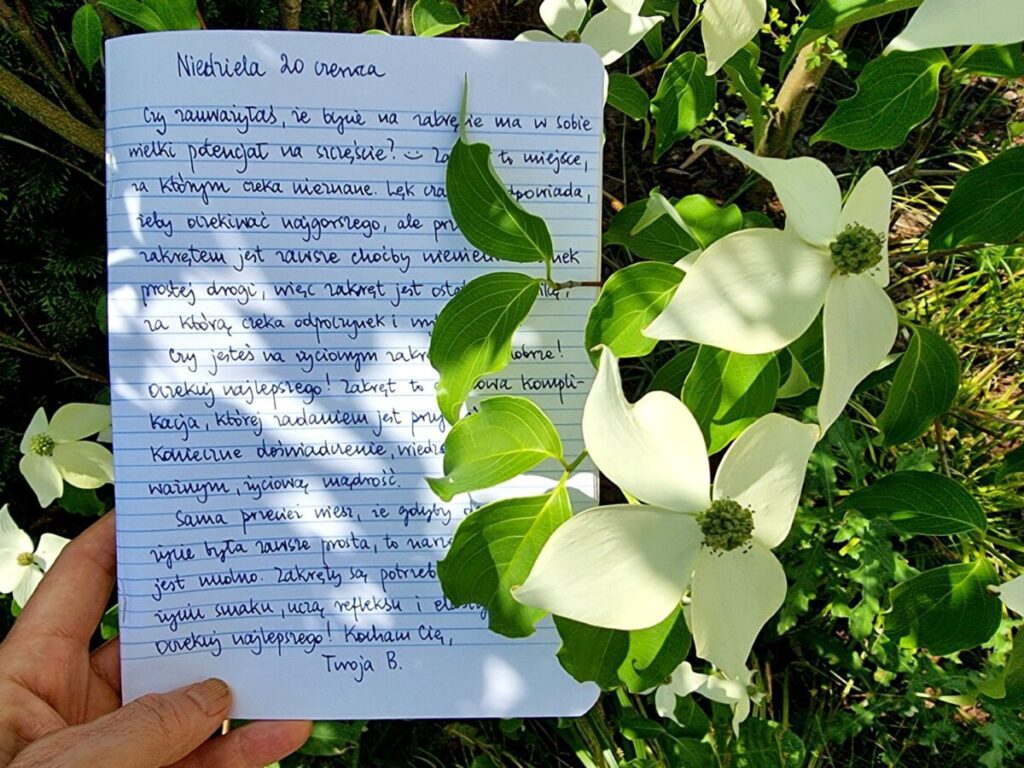 Niedziela 20 czerwca
Czy zauważyłaś, że bycie na zakręcie ma w sobie
wielki potencjał na szczęście? to miejsce,
za którym czeka nieznane. Lęk
żeby oczekiwać najgorszego, ale
zakrętem jest zawsze choćby
prostej drogi, więc zakręt jest
za którą czeka odpoczynek i
Czy jesteś na życiowym dobrze!
Oczekuj najlepszego! Zakręt to kompli-
kacja, której zadaniem jest
konieczne doświadczenie,
ważnym, życiową mądrość.
Sama przecież wiesz, że gdyby
życie była zawsze prosta, to
jest nudno. Zakręty są
życiu smaku, uczą refleksu i
Oczekuj najlepszego! Kocham Cię,
Twoja B.